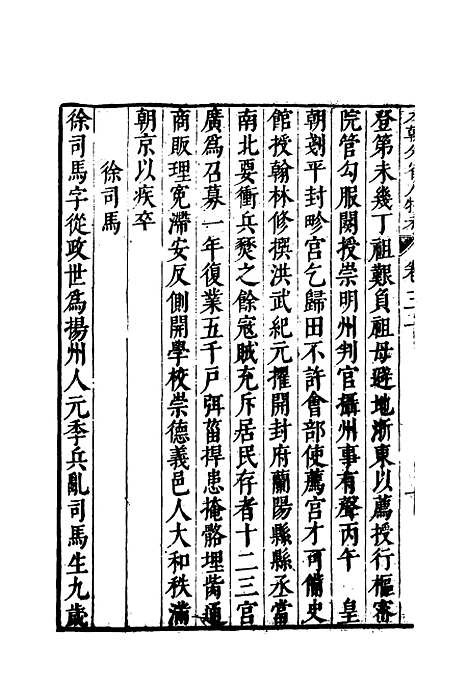 登第未幾丁祖艱負祖母避地浙東以薦授行樞審
院管勾服闋授崇明州判官攝州事有聲丙午　皇
朝剗平封畛宮乞歸田不許會部使薦宮才可備史
館授翰林修撰洪武紀元擢開封府蘭陽縣縣丞當
南北要衝兵燹之餘寇賊充斥居民存者十二三宮
廣爲召募一年復業五千戶弭菑捍患掩骼埋胔通
商販理冤滯安反側開學校崇德義邑人大和秩滿
朝京以疾卒
徐司馬
徐司馬字從政世爲揚州人元季兵亂司馬生九歲